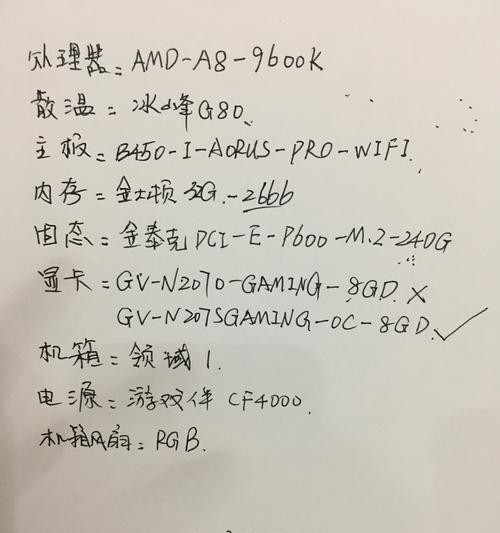 处理器：AMD-A8-9600K
散温：冰峰G80.
主板：B450-I-AORUS-PRO-WIFI.
内存：金士顿32G.-2666
固态：金泰克PCI-E-P600-M.2-240G
显卡：GV-N2070-GAMING-8GD.×
GV-N207SGAMING-OC-8GD.✓
机箱：领域1.
电源：游戏伴CF4000.
机箱风扇：RGB.